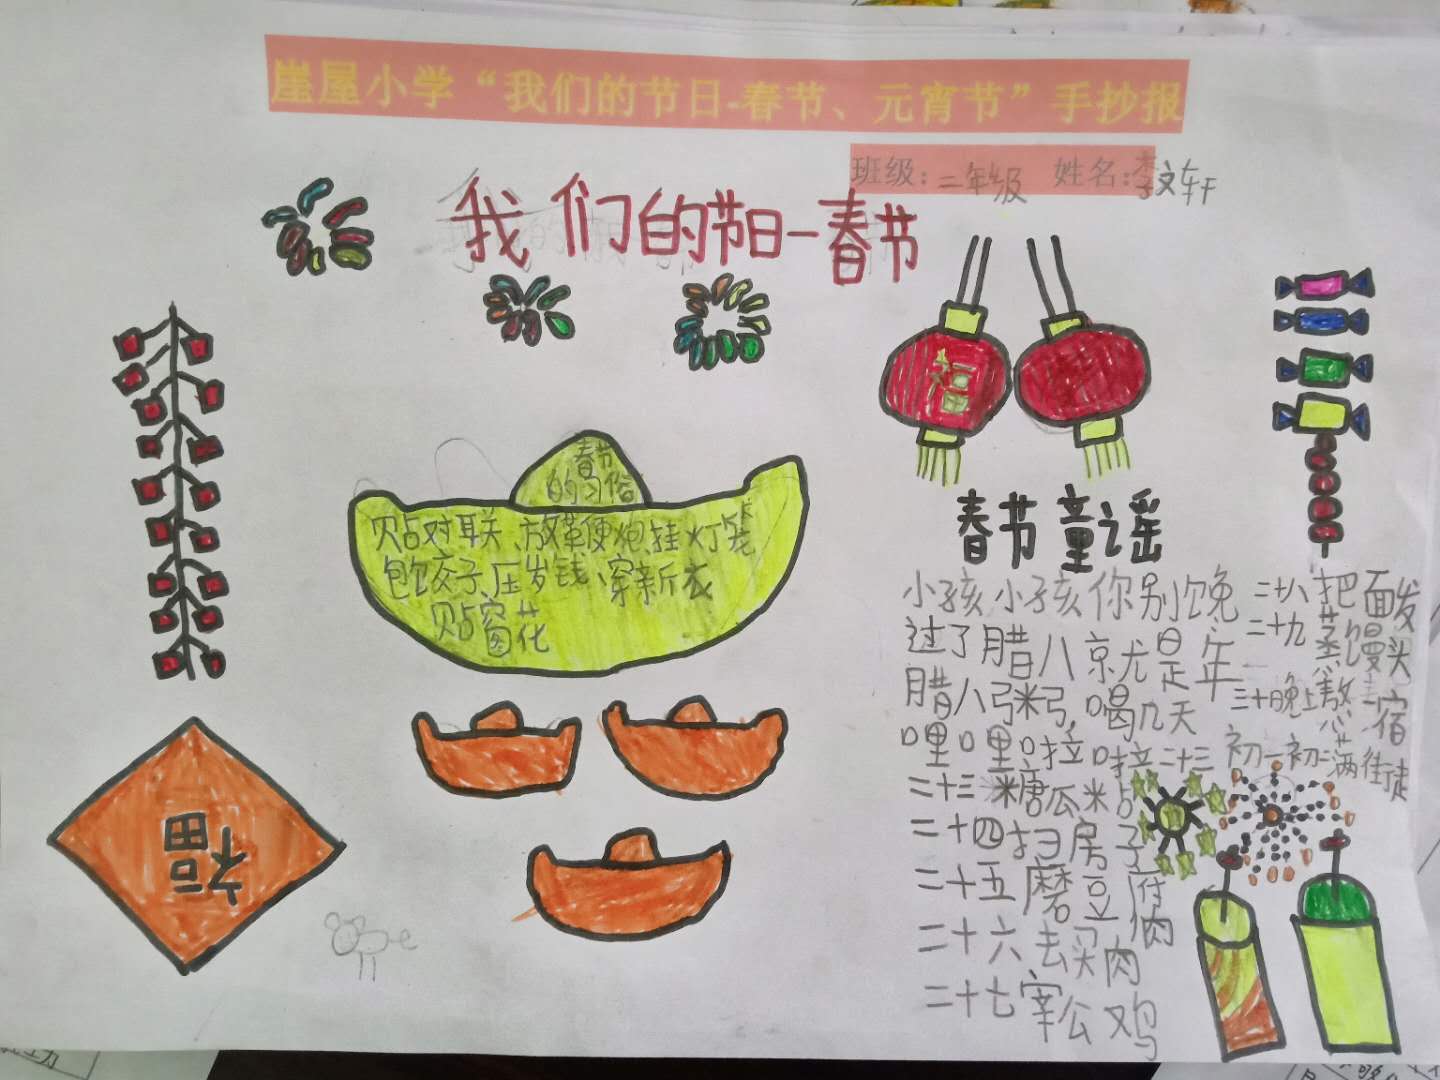 崖屋小学“我们的节日-春节、元宵节”手抄报
班级：二年级 姓名：李文轩
我们的节日-春节
福
春节
的习俗
贴对联 放革便炮 挂灯笼
包饺子 压岁钱 穿新衣
贴窗花
福
春节童谣
小孩小孩你别馋
过了腊八就是年
腊八粥 喝几天
哩哩啦啦二十三
二十三糖瓜粘
二十四扫房子
二十五磨豆腐
二十六去买肉
二十七宰公鸡
二十八把面发
二十九蒸馒头
三十晚上熬一宿
初一初二满街走